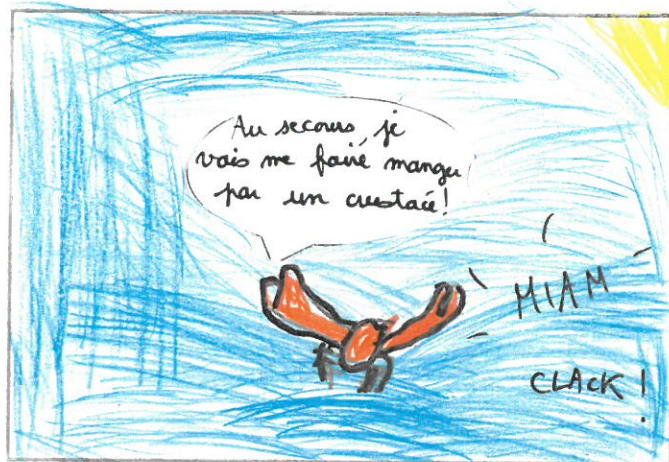 Au secours, je
vais me faire manger
par un crustacé!
MIAM
CLACK!